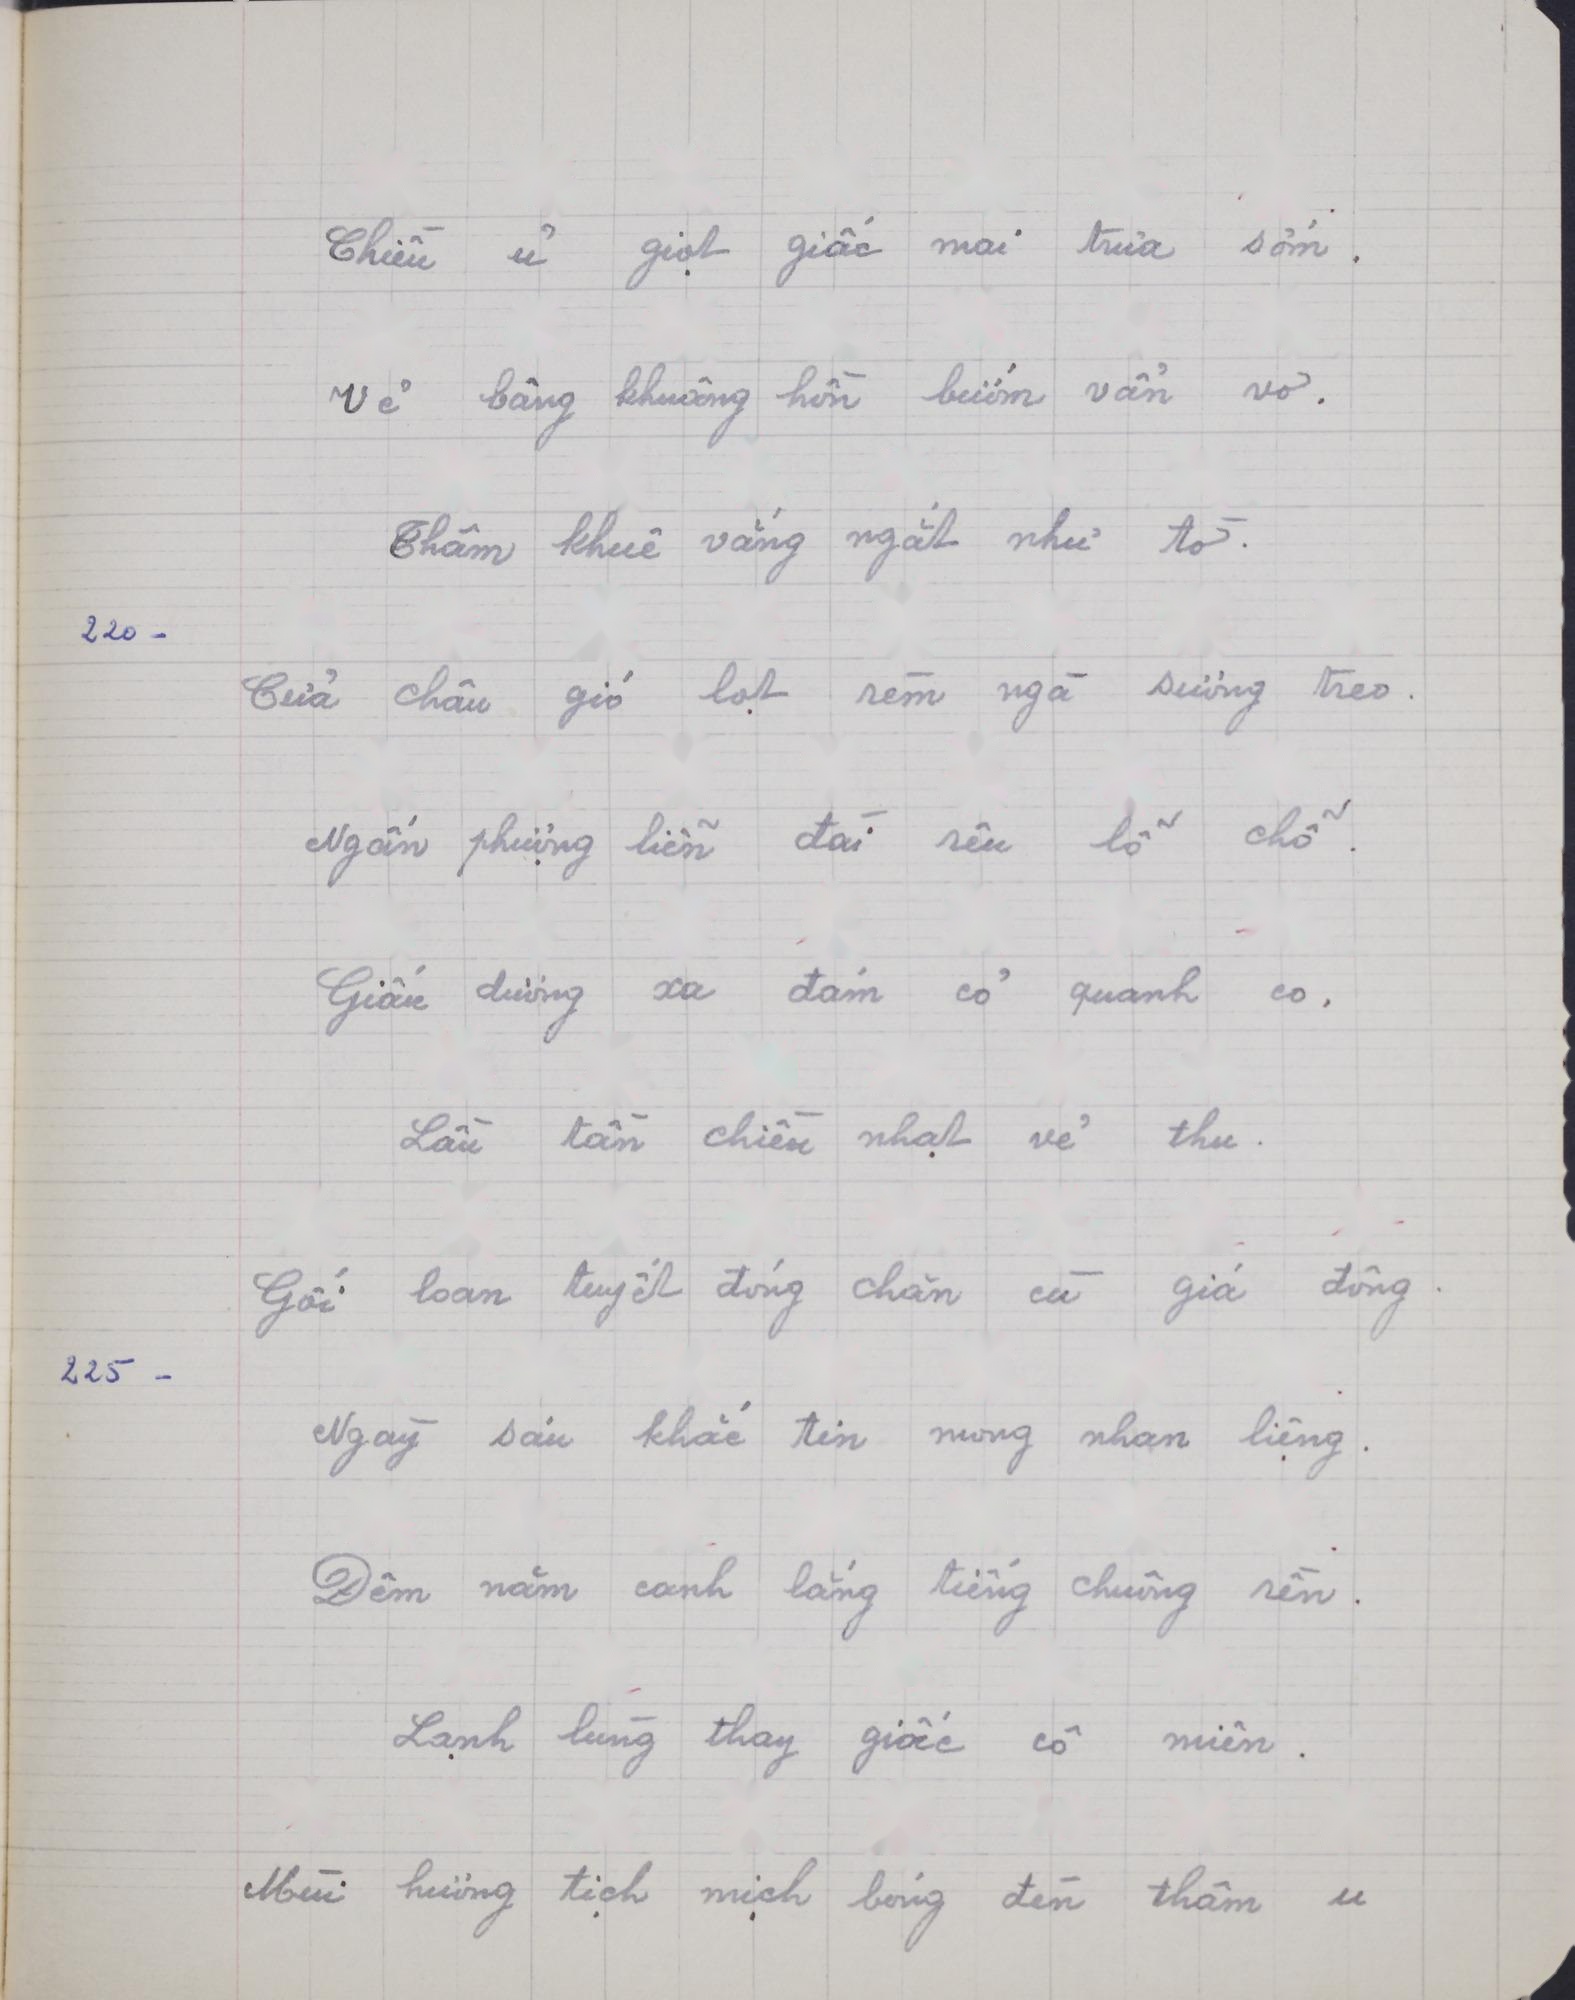 Chiều ủ giọt giấc mai trưa sớm.
Vẻ bâng khuâng hồn bướm vẩn vơ.
Thâm khuê vắng ngắt như tờ.
220 -
Cửa châu gió lọt rèm ngà sương treo.
Ngấn phượng liễn đài rêu lỗ chỗ.
Giấu dương xa đám cỏ quanh co.
Lầu tần chiều nhạt vẻ thu.
Gối loan tuyết đóng chăn cù giá đông.
225 -
Ngày sáu khắc tin mong nhạn liệng.
Đêm năm canh lắng tiếng chuông rền.
Lạnh lùng thay giấc cô miên.
Mùi hương tịch mịch bóng đèn thâm u